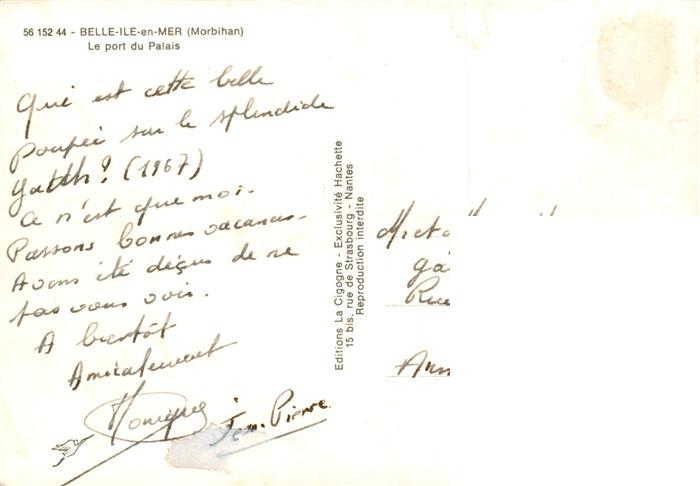 56 152 44 - BELLE-ILE-en-MER (Morbihan)
Le port du Palais
Qui est cette belle
Poupée sur le splendide
Yatch? (1967)
Ce n'est que moi.
Passons bonnes vacances.
Avons été déçus de ne
pas vous voir.
A bientôt
Amicalement
Monique
Jean. Pierre.
Editions La Cigogne - Exclusivité Hachette
15 bis, rue de Strasbourg - Nantes
Reproduction interdite
Rue